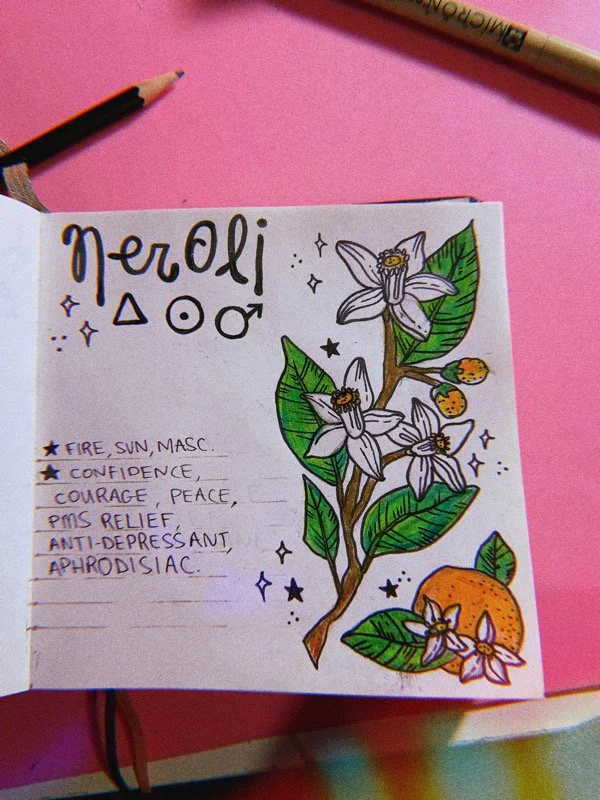 MICRON
Neroli
△ ☉ ♂
★ FIRE, SUN, MASC.
★ CONFIDENCE,
COURAGE, PEACE,
PMS RELIEF,
ANTI-DEPRESSANT,
APHRODISIAC.